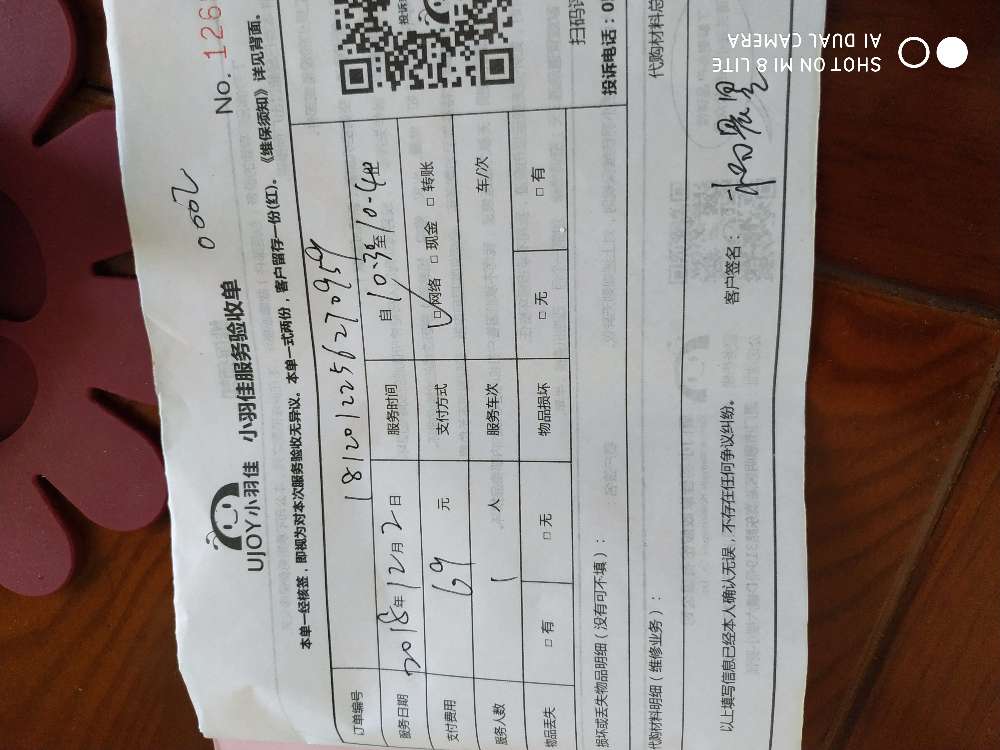 No. 126
0002
UJOY小羽佳 小羽佳服务验收单
本单一经核签，即视为对本次服务验收无异议。本单一式两份，客户留存一份(红)。《维保须知》详见背面。
订单编号 1812012256270959
服务日期 2018年12月2日 服务时间 自10:30至10:40
支付费用 69 元 支付方式 □网络 □现金 □转账
服务人数 1 人 服务车次 车/次
物品丢失 □有 □无 物品损坏 □无 □有
损坏或丢失物品明细（没有可不填）：
投诉电话：0
代购材料明细（维修业务）：
代购材料总
以上填写信息已经本人确认无误，不存在任何争议纠纷。 客户签名：
SHOT ON MI 8 LITE
AI DUAL CAMERA